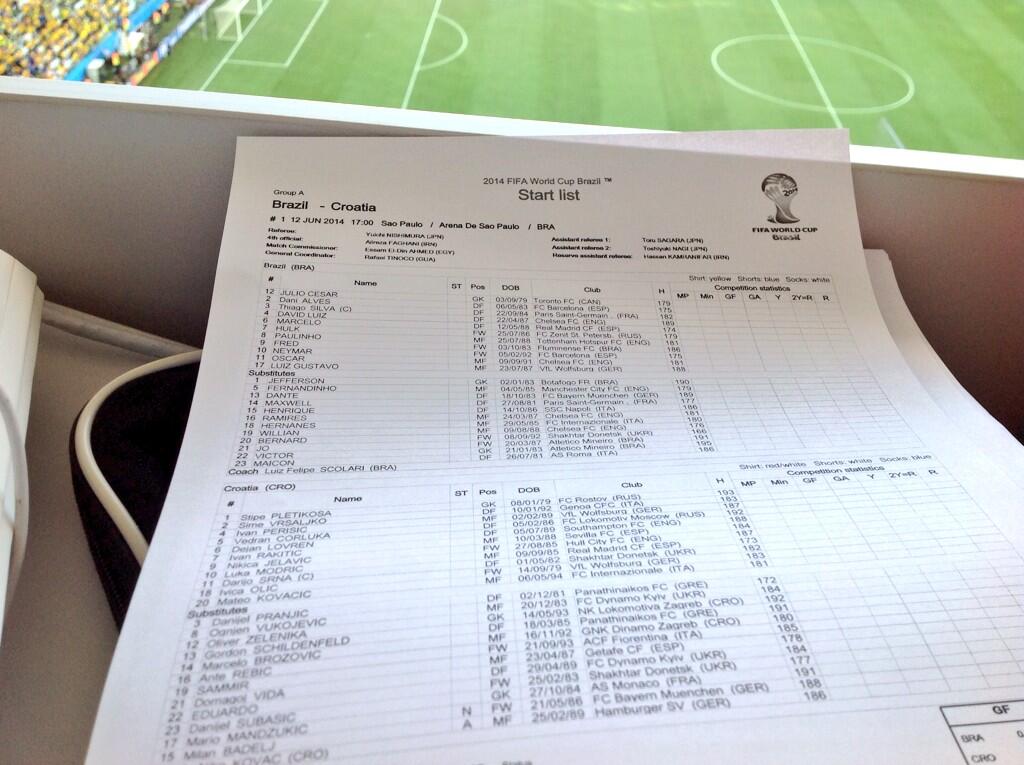 2014 FIFA World Cup Brazil ™
Start list
FIFA WORLD CUP
Brasil
Group A
Brazil - Croatia
# 1 12 JUN 2014 17:00 Sao Paulo / Arena De Sao Paulo / BRA
Referee: Yuichi NISHIMURA (JPN) Assistant referee 1: Toru SAGARA (JPN)
4th official: Alireza FAGHANI (IRN) Assistant referee 2: Toshiyuki NAGI (JPN)
Match Commissioner: Essam El-Din AHMED (EGY) Reserve assistant referee: Hassan KAMRANIFAR (IRN)
General Coordinator: Rafael TINOCO (GUA)
Brazil (BRA) Shirt: yellow Shorts: blue Socks: white
Competition statistics
# Name ST Pos DOB Club H MP Min GF GA Y 2Y=R R
12 JULIO CESAR GK 03/09/79 Toronto FC (CAN) 179
2 Dani ALVES DF 06/05/83 FC Barcelona (ESP) 175
3 Thiago SILVA (C) DF 22/09/84 Paris Saint-Germain . (FRA) 182
4 DAVID LUIZ DF 22/04/87 Chelsea FC (ENG) 189
6 MARCELO DF 12/05/88 Real Madrid CF (ESP) 174
7 HULK FW 25/07/86 FC Zenit St. Petersb. (RUS) 179
8 PAULINHO MF 25/07/88 Tottenham Hotspur FC (ENG) 181
9 FRED FW 03/10/83 Fluminense FC (BRA) 186
10 NEYMAR FW 05/02/92 FC Barcelona (ESP) 175
11 OSCAR MF 09/09/91 Chelsea FC (ENG) 181
17 LUIZ GUSTAVO MF 23/07/87 VfL Wolfsburg (GER) 188
Substitutes
1 JEFFERSON GK 02/01/83 Botafogo FR (BRA) 190
5 FERNANDINHO MF 04/05/85 Manchester City FC (ENG) 179
13 DANTE DF 18/10/83 FC Bayern Muenchen (GER) 189
14 MAXWELL DF 27/08/81 Paris Saint-Germain . (FRA) 177
15 HENRIQUE DF 14/10/86 SSC Napoli (ITA) 186
16 RAMIRES MF 24/03/87 Chelsea FC (ENG) 181
18 HERNANES MF 29/05/85 FC Internazionale (ITA) 180
19 WILLIAN MF 09/08/88 Chelsea FC (ENG) 176
20 BERNARD FW 08/09/92 Shakhtar Donetsk (UKR) 166
21 JO FW 20/03/87 Atletico Mineiro (BRA) 191
22 VICTOR GK 21/01/83 Atletico Mineiro (BRA) 195
23 MAICON DF 26/07/81 AS Roma (ITA) 186
Coach Luiz Felipe SCOLARI (BRA)
Croatia (CRO) Shirt: red/white Shorts: white Socks: blue
Competition statistics
# Name ST Pos DOB Club H MP Min GF GA Y 2Y=R R
1 Stipe PLETIKOSA GK 08/01/79 FC Rostov (RUS) 193
2 Sime VRSALJKO DF 10/01/92 Genoa CFC (ITA) 183
4 Ivan PERISIC MF 02/02/89 VfL Wolfsburg (GER) 187
5 Vedran CORLUKA DF 05/02/86 FC Lokomotiv Moscow (RUS) 192
6 Dejan LOVREN DF 05/07/89 Southampton FC (ENG) 188
7 Ivan RAKITIC MF 10/03/88 Sevilla FC (ESP) 184
9 Nikica JELAVIC FW 27/08/85 Hull City FC (ENG) 187
10 Luka MODRIC MF 09/09/85 Real Madrid CF (ESP) 173
11 Darijo SRNA (C) DF 01/05/82 Shakhtar Donetsk (UKR) 182
18 Ivica OLIC FW 14/09/79 VfL Wolfsburg (GER) 183
20 Mateo KOVACIC MF 06/05/94 FC Internazionale (ITA) 181
Substitutes
3 Danijel PRANJIC DF 02/12/81 Panathinaikos FC (GRE) 172
8 Ognjen VUKOJEVIC MF 20/12/83 FC Dynamo Kyiv (UKR) 184
12 Oliver ZELENIKA GK 14/05/93 NK Lokomotiva Zagreb (CRO) 192
13 Gordon SCHILDENFELD DF 18/03/85 Panathinaikos FC (GRE) 191
14 Marcelo BROZOVIC MF 16/11/92 GNK Dinamo Zagreb (CRO) 180
16 Ante REBIC FW 21/09/93 ACF Fiorentina (ITA) 185
19 SAMMIR MF 23/04/87 Getafe CF (ESP) 178
21 Domagoj VIDA DF 29/04/89 FC Dynamo Kyiv (UKR) 184
22 EDUARDO FW Shakhtar Donetsk (UKR) 177
23 Danijel SUBASIC GK 27/10/84 AS Monaco (FRA) 191
17 Mario MANDZUKIC N FW 21/05/86 FC Bayern Muenchen (GER) 188
15 Milan BADELJ A MF 25/02/89 Hamburger SV (GER) 186
KOVAC (CRO)
GF
BRA
CRO